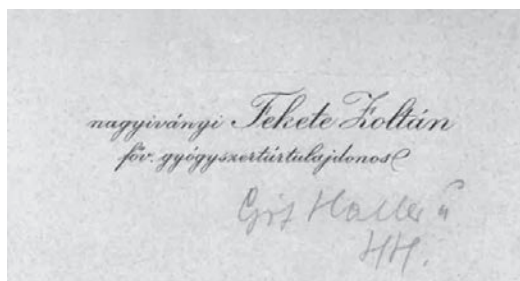 nagyiványi Fekete Zoltán
főv. gyógyszertártulajdonos
Haller u
44.